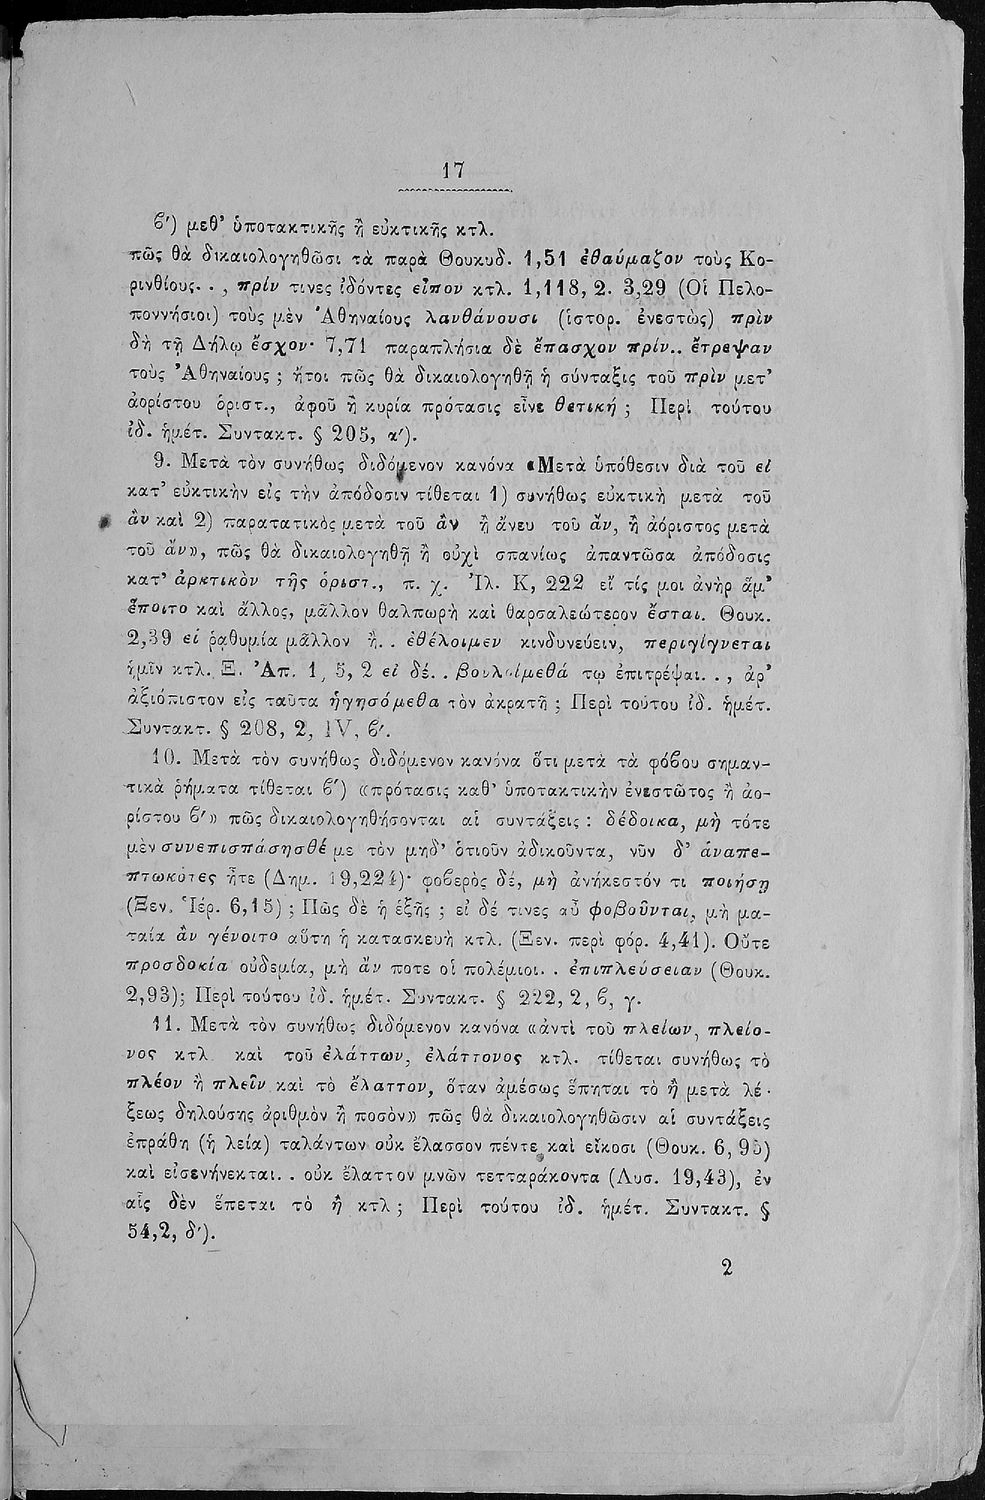 17
ϐ') μεθ' ὑποτακτικῆς ἢ εὐκτικῆς κτλ.
πῶς θὰ δικαιολογηθῶσι τὰ παρὰ Θουκυδ. 1,51 ἐθαύμαζον τοὺς Κο-
ρινθίους. . , πρίν τινες ἰδόντες εἶπον κτλ. 1,118, 2. 3,29 (Οἱ Πελο-
ποννήσιοι) τοὺς μὲν Ἀθηναίους λανθάνουσι (ἱστορ. ἐνεστὼς) πρὶν
δὴ τῇ Δήλῳ ἔσχον· 7,71 παραπλήσια δὲ ἔπασχον πρίν.. ἔτρεψαν
τοὺς Ἀθηναίους ; ἤτοι πῶς θὰ δικαιολογηθῇ ἡ σύνταξις τοῦ πρὶν μετ'
ἀορίστου ὁριστ., ἀφοῦ ἡ κυρία πρότασις εἶνε θετική ; Περὶ τούτου
ἰδ. ἡμέτ. Συντακτ. § 205, α').
9. Μετὰ τὸν συνήθως διδόμενον κανόνα «Μετὰ ὑπόθεσιν διὰ τοῦ εἰ
κατ' εὐκτικὴν εἰς τὴν ἀπόδοσιν τίθεται 1) συνήθως εὐκτικὴ μετὰ τοῦ
ἂν καὶ 2) παρατατικὸς μετὰ τοῦ ἂν ἢ ἄνευ τοῦ ἄν, ἢ ἀόριστος μετὰ
τοῦ ἄν», πῶς θὰ δικαιολογηθῇ ἡ οὐχὶ σπανίως ἀπαντῶσα ἀπόδοσις
κατ' ἀρκτικὸν τῆς ὁριστ., π. χ. Ἰλ. Κ, 222 εἴ τίς μοι ἀνὴρ ἅμ'
ἕποιτο καὶ ἄλλος, μᾶλλον θαλπωρὴ καὶ θαρσαλεώτερον ἔσται. Θουκ.
2,39 εἰ ῥᾳθυμίᾳ μᾶλλον ἢ. . ἐθέλοιμεν κινδυνεύειν, περιγίγνεται
ἡμῖν κτλ. Ξ. Ἀπ. 1, 5, 2 εἰ δέ. . βουλοίμεθά τῳ ἐπιτρέψαι. . , ἆρ'
ἀξιόπιστον εἰς ταῦτα ἡγησόμεθα τὸν ἀκρατῆ ; Περὶ τούτου ἰδ. ἡμέτ.
Συντακτ. § 208, 2, IV, ϐ'.
10. Μετὰ τὸν συνήθως διδόμενον κανόνα ὅτι μετὰ τὰ φόϐου σημαν-
τικὰ ῥήματα τίθεται ϐ') «πρότασις καθ' ὑποτακτικὴν ἐνεστῶτος ἢ ἀο-
ρίστου ϐ'» πῶς δικαιολογηθήσονται αἱ συντάξεις : δέδοικα, μὴ τότε
μὲν συνεπισπάσησθέ με τὸν μηδ' ὁτιοῦν ἀδικοῦντα, νῦν δ' ἀναπε-
πτωκότες ἦτε (Δημ. 19,224)· φοϐερὸς δέ, μὴ ἀνήκεστόν τι ποιήσῃ
(Ξεν. Ἱέρ. 6,15) ; Πῶς δὲ ἡ ἑξῆς ; εἰ δέ τινες αὖ φοβοῦνται, μὴ μα-
ταία ἂν γένοιτο αὕτη ἡ κατασκευὴ κτλ. (Ξεν. περὶ φόρ. 4,41). Οὔτε
προσδοκία οὐδεμία, μὴ ἄν ποτε οἱ πολέμιοι. . ἐπιπλεύσειαν (Θουκ.
2,93); Περὶ τούτου ἰδ. ἡμέτ. Συντακτ. § 222, 2, ϐ, γ.
11. Μετὰ τὸν συνήθως διδόμενον κανόνα «ἀντὶ τοῦ πλείων, πλείο-
νος κτλ. καὶ τοῦ ἐλάττων, ἐλάττονος κτλ. τίθεται συνήθως τὸ
πλέον ἢ πλεῖν καὶ τὸ ἔλαττον, ὅταν ἀμέσως ἕπηται τὸ ἢ μετὰ λέ-
ξεως δηλούσης ἀριθμὸν ἢ ποσὸν» πῶς θὰ δικαιολογηθῶσιν αἱ συντάξεις
ἐπράθη (ἡ λεία) ταλάντων οὐκ ἔλασσον πέντε καὶ εἴκοσι (Θουκ. 6, 95)
καὶ εἰσενήνεκται. . οὐκ ἔλαττον μνῶν τετταράκοντα (Λυσ. 19,43), ἐν
αἷς δὲν ἕπεται τὸ ἢ κτλ ; Περὶ τούτου ἰδ. ἡμέτ. Συντακτ. §
54,2, δ').
2